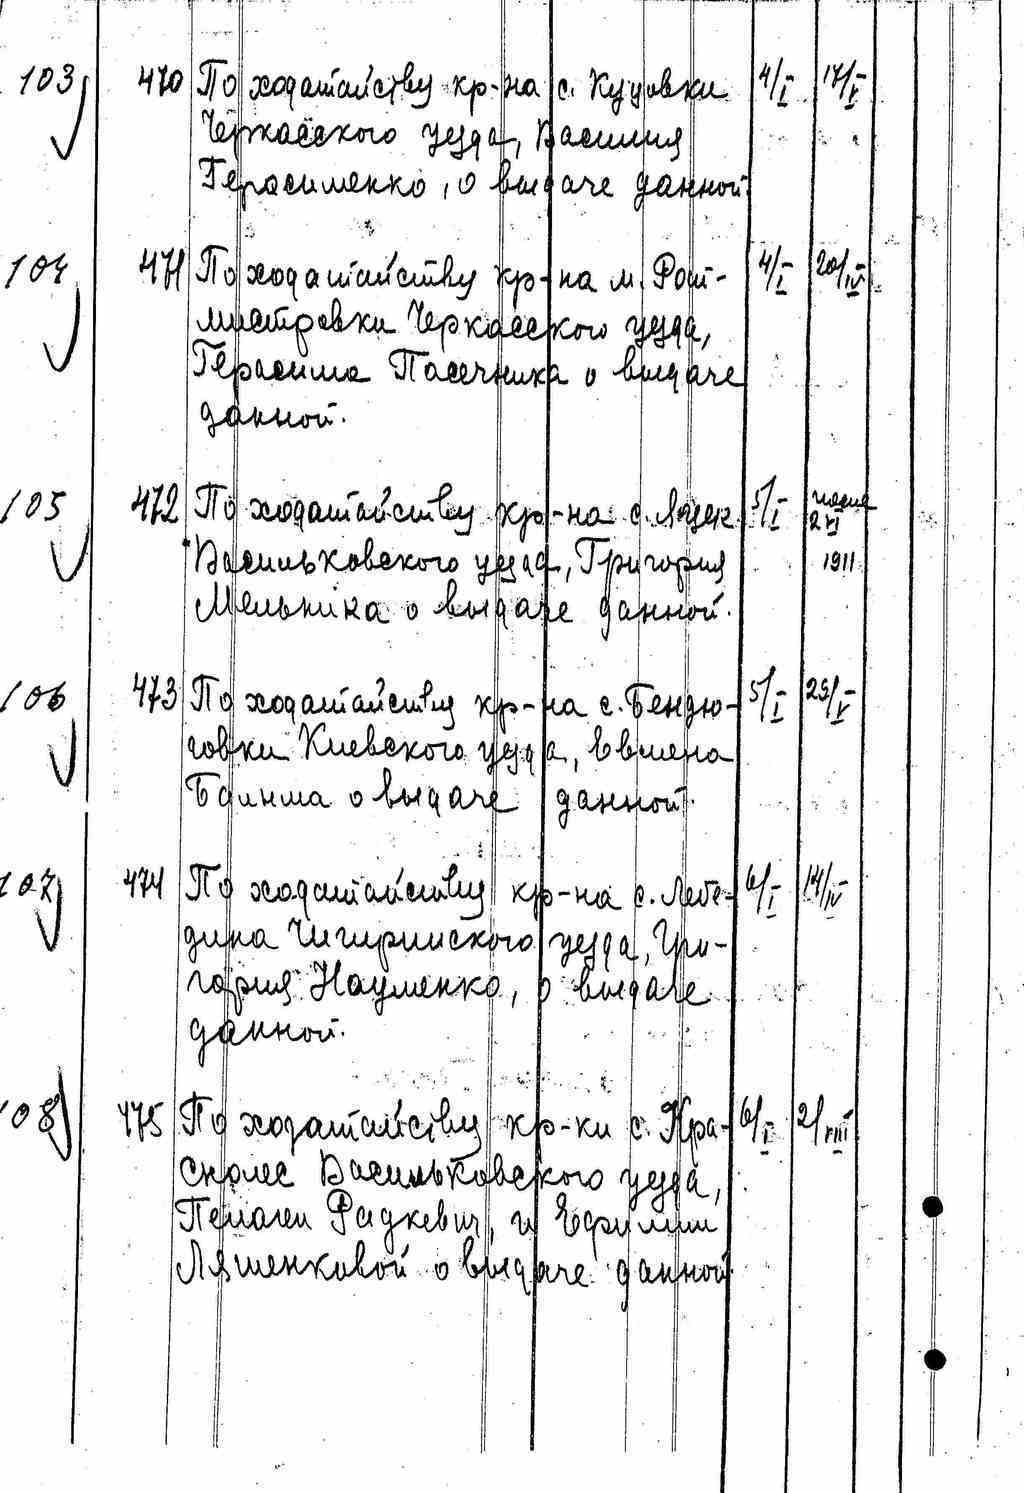 103 470 По ходатайству кр-на с. Куцовки 4/I 17/V
Черкасского уезда, Василия
Герасименко, о выдаче данной
104 471 По ходатайству кр-на м. Рот- 4/I 20/IV
мистровки Черкасского уезда,
Герасима Пасечника о выдаче
данной.
105 472 По ходатайству кр-на с. 5/I
Васильковского уезда, Григория 1911
Мельника о выдаче данной.
106 473 По ходатайству кр-на с. Бендю- 5/I 23/V
говки Киевского уезда, Евмена
о выдаче данной.
107 474 По ходатайству кр-на с. Лебе- 6/I 14/IV
дина Чигиринского уезда, Гри-
гория Науменко, о выдаче
данной.
108 475 По ходатайству кр-ки с. Кра- 6/I 2/VIII
снолес Васильковского уезда,
Пелагеи Радкевич, и Ефимии
Ляшенковой о выдаче данной.